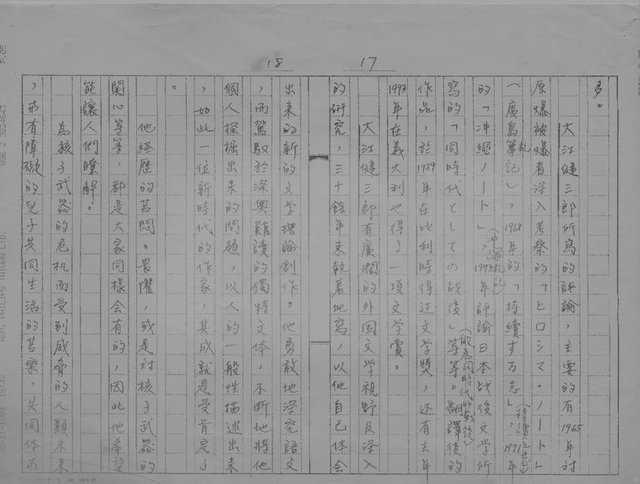 17
多。
大江健三郎所寫的評論，主要的有1965年对
原爆被爆者深入考察的「ヒロシマ・ノート」
（廣島札記），1968年的「持續する志」，1971年
（持續之志）
的「沖縄ノート」，1973年評論日本战後文学所
（沖縄札記）
寫的「同時代としての战後」等等。翻譯後的
（做為同時代的戰後）
作品，於1989年在比利時得过文学獎，还有去年
1993年在義大利也得了一項文学賞。
大江健三郎有廣濶的外国文学視野及深入
的研究，三十餘年來執着地寫，以他自己体会
18
出來的新的文学理論創作。他勇敢地深究語文
，而駕馭於深奥難讀的獨特文体，不断地將他
個人探掘出來的問題，以人的一般性描述出來
，如此一位新時代的作家，其成就是受肯定了
。
他經歷的苦悶。畏懼，或是对核子武器的
関心等等，都是大家同樣会有的，因此他希望
能讓人們瞭解。
為核子武器的危机而受到威脅的人類未來
，形有障礙的兒子共同生活的苦樂，共同作为